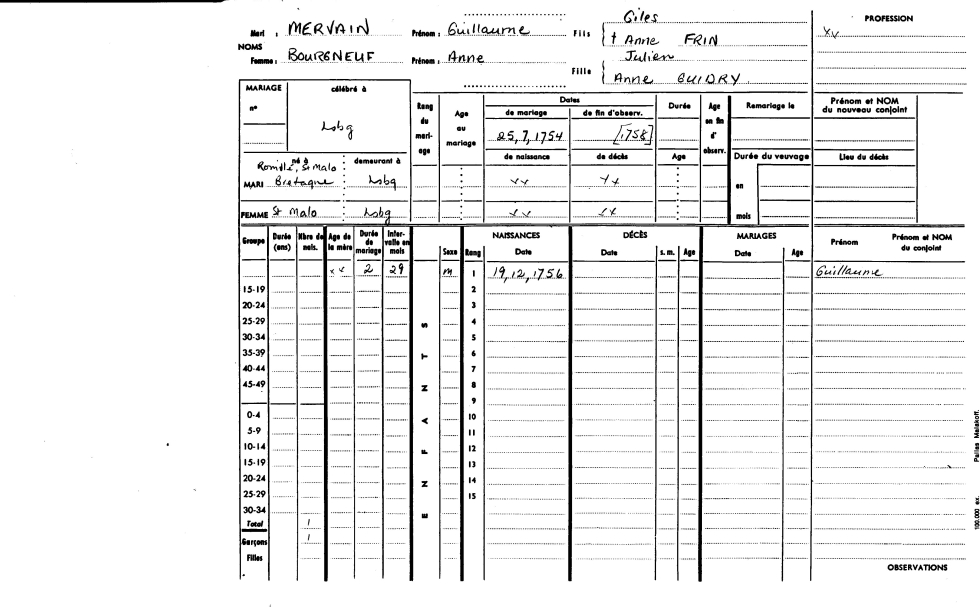 Giles
Mari : MERVAIN Prénom : Guillaume Fils † Anne FRIN PROFESSION
xx
NOMS Julien
Femme : BOURGNEUF Prénom : Anne Fille Anne GUIDRY
MARIAGE célébré à
n° Lsbg
Rang du mariage Age au mariage Dates Durée Age en fin d'observ. Remariage le Prénom et NOM du nouveau conjoint
de mariage de fin d'observ.
25,7,1754 [1758]
de naissance de décès Age Durée du veuvage Lieu du décès
né à demeurant à
Romillé, St Malo
MARI Bretagne Lsbg xx xx en
FEMME St Malo Lsbg xx xx mois
Groupe Durée (ans) Nbre de nais. Age de la mère Durée de mariage Intervalle en mois ENFANTS Sexe Rang NAISSANCES Date DÉCÈS Date s. m. Age MARIAGES Date Age Prénom Prénom et NOM du conjoint
xx 2 29 m 1 19,12,1756 Guillaume
15-19 2
20-24 3
25-29 4
30-34 5
35-39 6
40-44 7
45-49 8
9
0-4 10
5-9 11
10-14 12
15-19 13
20-24 14
25-29 15
30-34
Total 1
Garçons 1
Filles
OBSERVATIONS
100.000 ex. Pailles Malakoff.